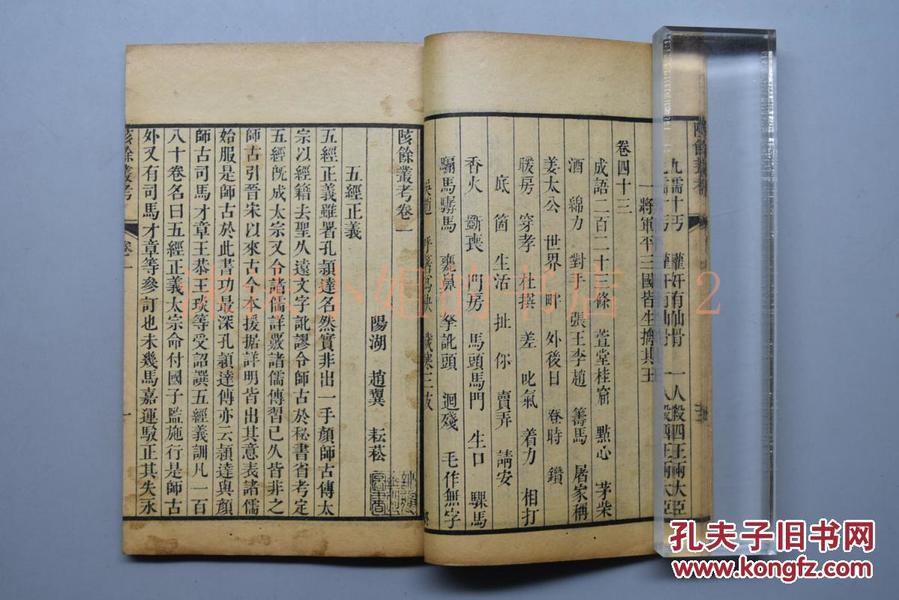 九儒十丐 灌奸有仙骨 一人殺四王兩大臣
一將軍平三國皆生擒其王
卷四十三
成語二百二十三條 萱堂桂窟 點心 茅柴
酒 綿力 對手 張王李趙 籌馬 屠家稱
姜太公 世界 町 外後日 登時 鑽
暖房 穿孝 杜撰 差 叱氣 着力 相打
底 箇 生活 扯 你 賣弄 請安
香火 斷喪 門房 馬頭馬門 生口 騍馬
騸馬 騬馬 齆鼻 拏訛頭 迴殘 毛作無字
陔餘叢考卷一
陽湖 趙翼 耘菘
五經正義
五經正義雖署孔穎達名然實非出一手顏師古傳太
宗以經籍去聖久遠文字訛謬令師古於秘書省考定
五經旣成太宗又令諸儒詳覈諸儒傳習已久皆非之
師古引晉宋以來古今本援據詳明皆出其意表諸儒
始服是師古於此書功最深孔穎達傳亦云穎達與顏
師古司馬才章王恭王琰等受詔譔五經義訓凡一百
八十卷名曰五經正義太宗命付國子監施行是師古
外又有司馬才章等參訂也未幾馬嘉運駁正其失永
陔餘叢考 卷一 一
2
孔夫子旧书网
www.kongfz.com